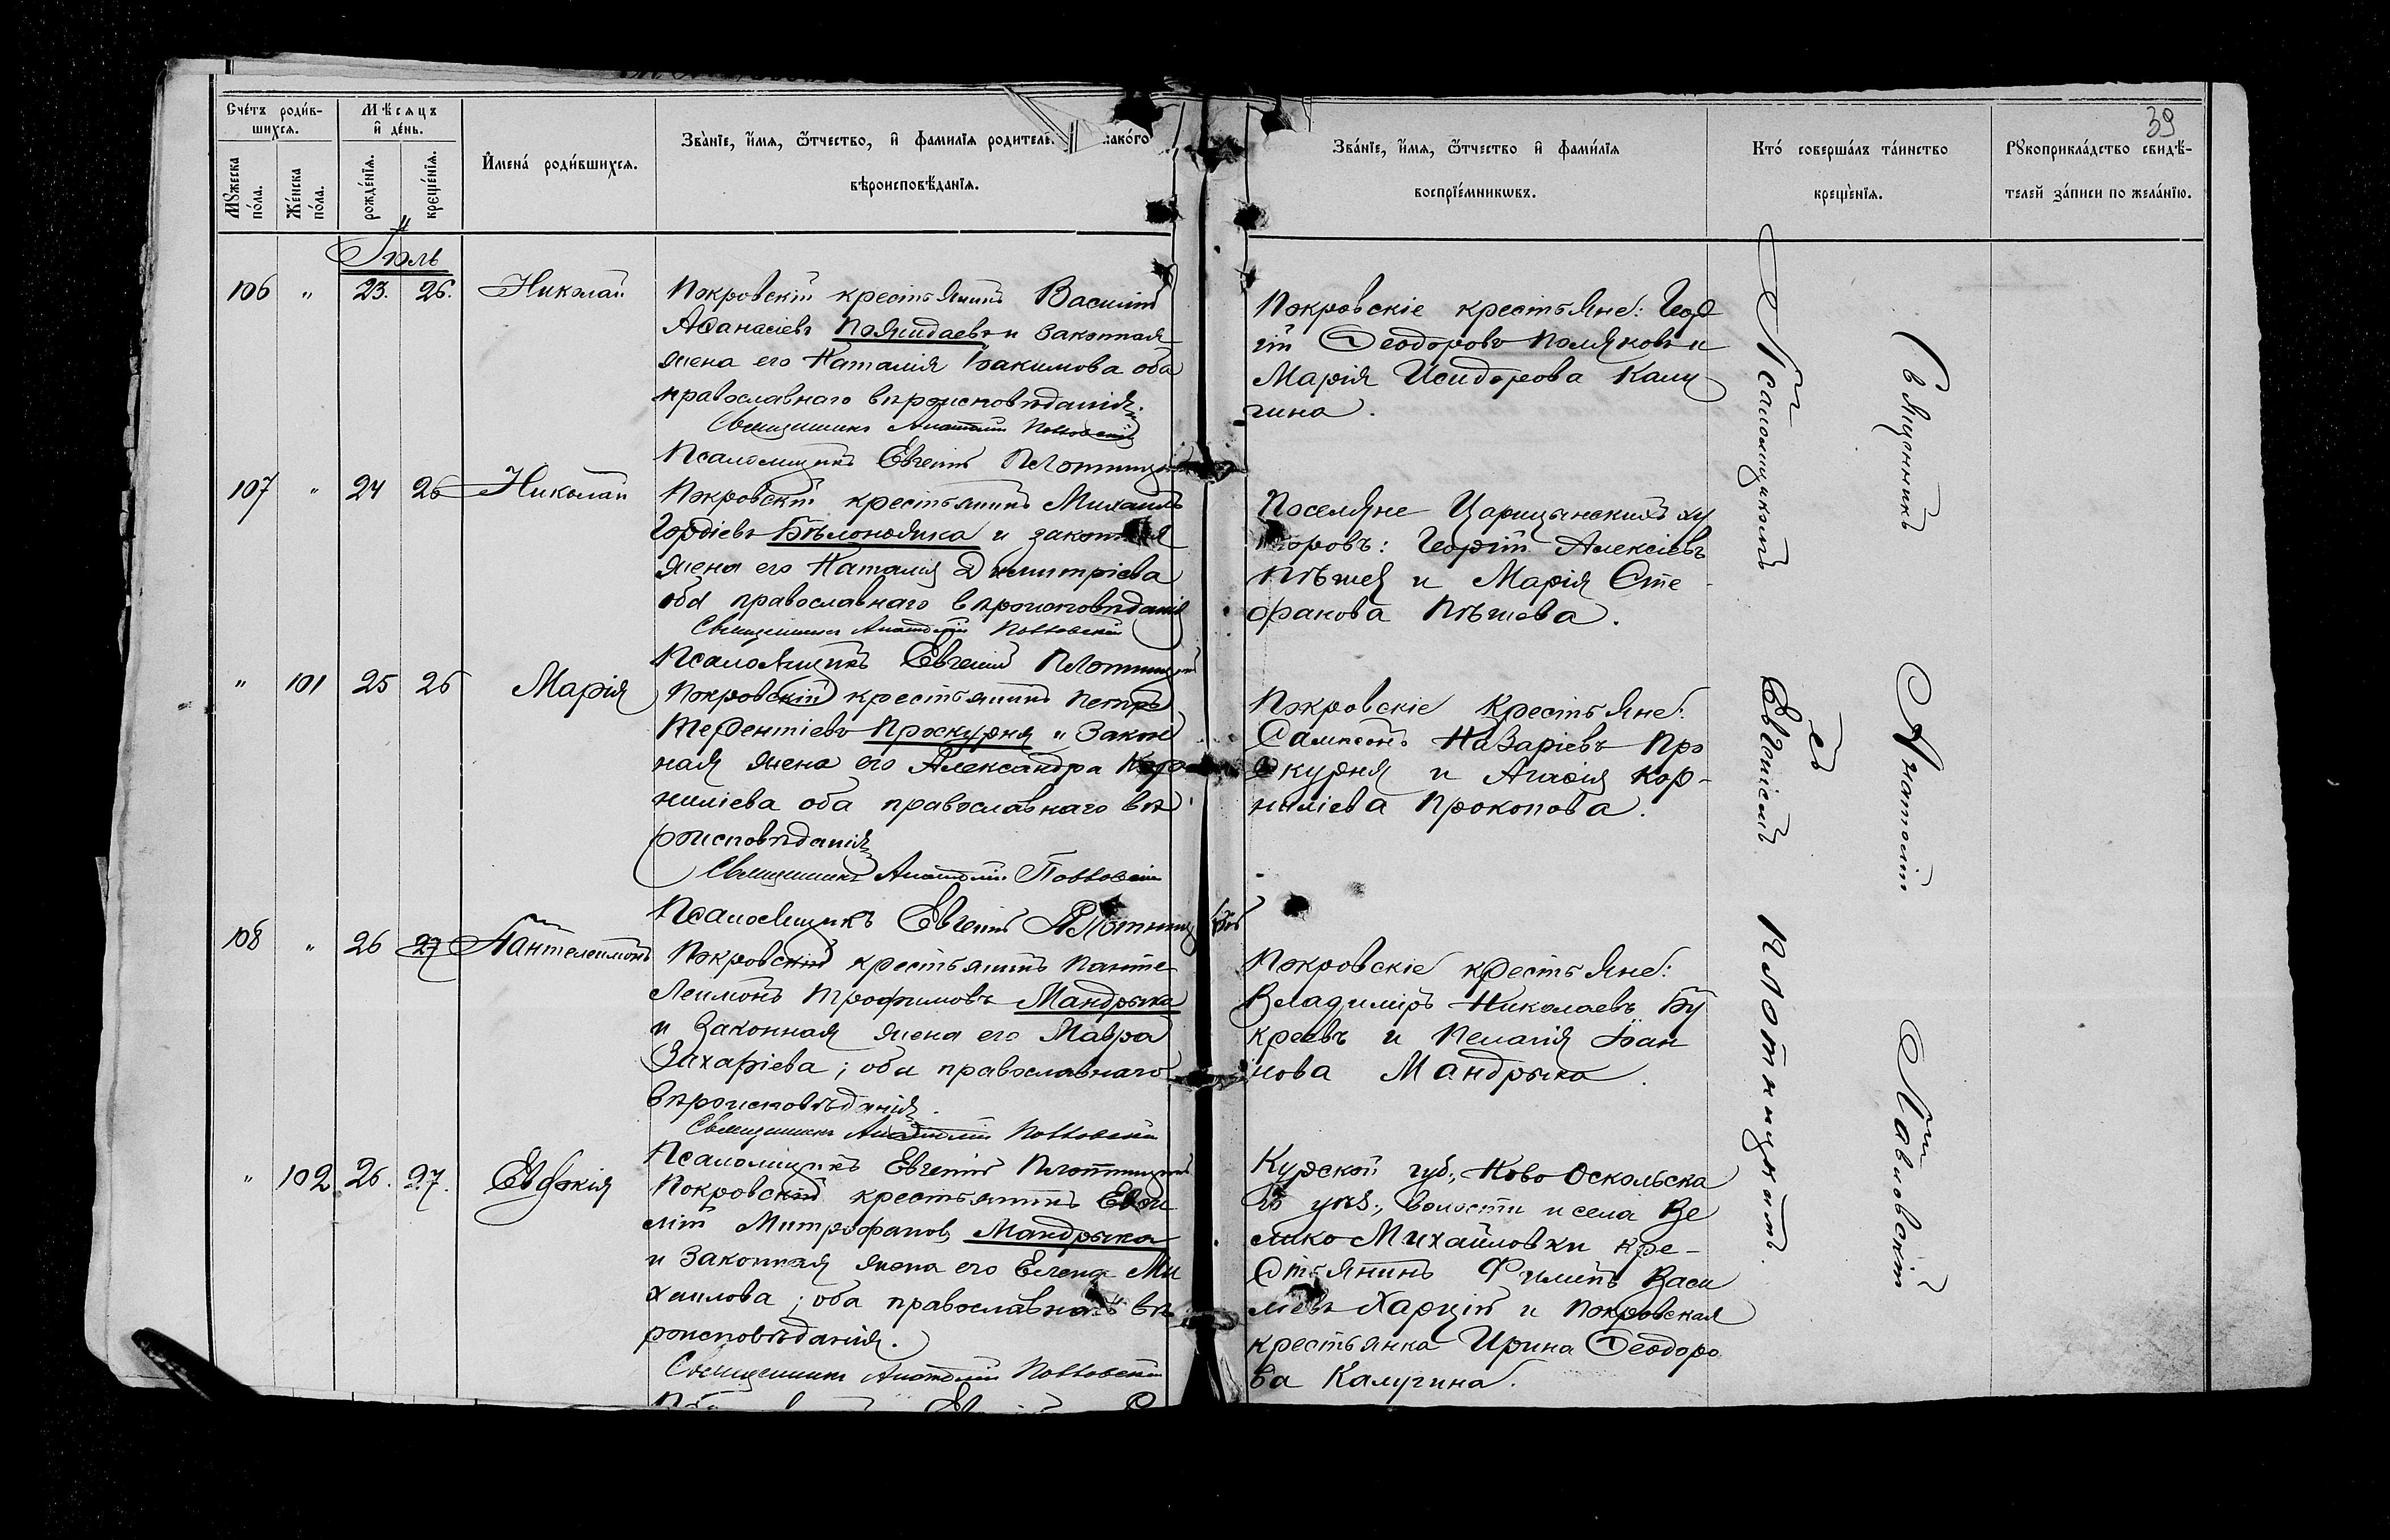 39
Счетъ родив-
шихся.
Мѣсяцъ
и день.
Мужеска пола.
Женска пола.
рожденія.
крещенія.
Имена родившихся.
Званіе, имя, отчество, и фамилія родителей
какого
вѣроисповѣданія.
Званіе, имя, отчество и фамилія
воспріемниковъ.
Кто совершалъ таинство
крещенія.
Рукоприкладство свидѣ-
телей записи по желанію.
Іюль
106 " 23. 26. Николай
Покровскій крестьянинъ Василій
Аѳанасіевъ и законная
жена его Наталія Іоакимова оба
православнаго вѣроисповѣданія.
Священникъ Анатолій
Псаломщикъ Евгеній Плотницкій
Покровскіе крестьяне: Геор
гій Ѳеодоровъ Поляковъ и
Марія Исидорова Калу
гина.
107 " 24 26 Николай
Покровскій крестьянинъ Михаилъ
Гордіевъ и законная
жена его Наталія Димитріева
оба православнаго вѣроисповѣданія
Священникъ Анатолій
Псаломщикъ Евгеній Плотницкій
Поселяне Царицынскихъ ху
торовъ: Георгій Алексіевъ
и Марія Сте
фанова
" 101 25 26 Марія
Покровскій крестьянинъ Петръ
Терентіевъ Проскурня и закон
ная жена его Александра Кор
ниліева оба православнаго вѣ
роисповѣданія
Священникъ Анатолій
Псаломщикъ Евгеній Плотницкій
Покровскіе крестьяне:
Сампсонъ Назаріевъ Про
скурня и Агафія Кор-
ниліева Прокопова.
108 " 26 27 Пантелеимонъ
Покровскій крестьянинъ Панте
леимонъ Трофимовъ Мандрыка
и законная жена его Мавра
Захаріева; оба православнаго
вѣроисповѣданія.
Священникъ Анатолій
Псаломщикъ Евгеній Плотницкій
Покровскіе крестьяне:
Владиміръ Николаевъ Бу
креевъ и Пелагія Іоан
нова Мандрыка.
" 102 26. 27. Евдокія
Покровскій крестьянинъ Евѳи
мій Митрофановъ Мандрыка
и законная жена его Елена Ми
хаилова; оба православнаго вѣ
роисповѣданія.
Священникъ Анатолій
Курской губ., Ново Оскольска
го уѣз., волости и села Ве
лико Михайловки кре-
стьянинъ Филипъ Васи
ліевъ и Покровская
крестьянка Ирина Ѳеодоро
ва Калугина.
Священникъ Анатолій
съ
Псаломщикомъ Евгеніемъ Плотницкимъ.